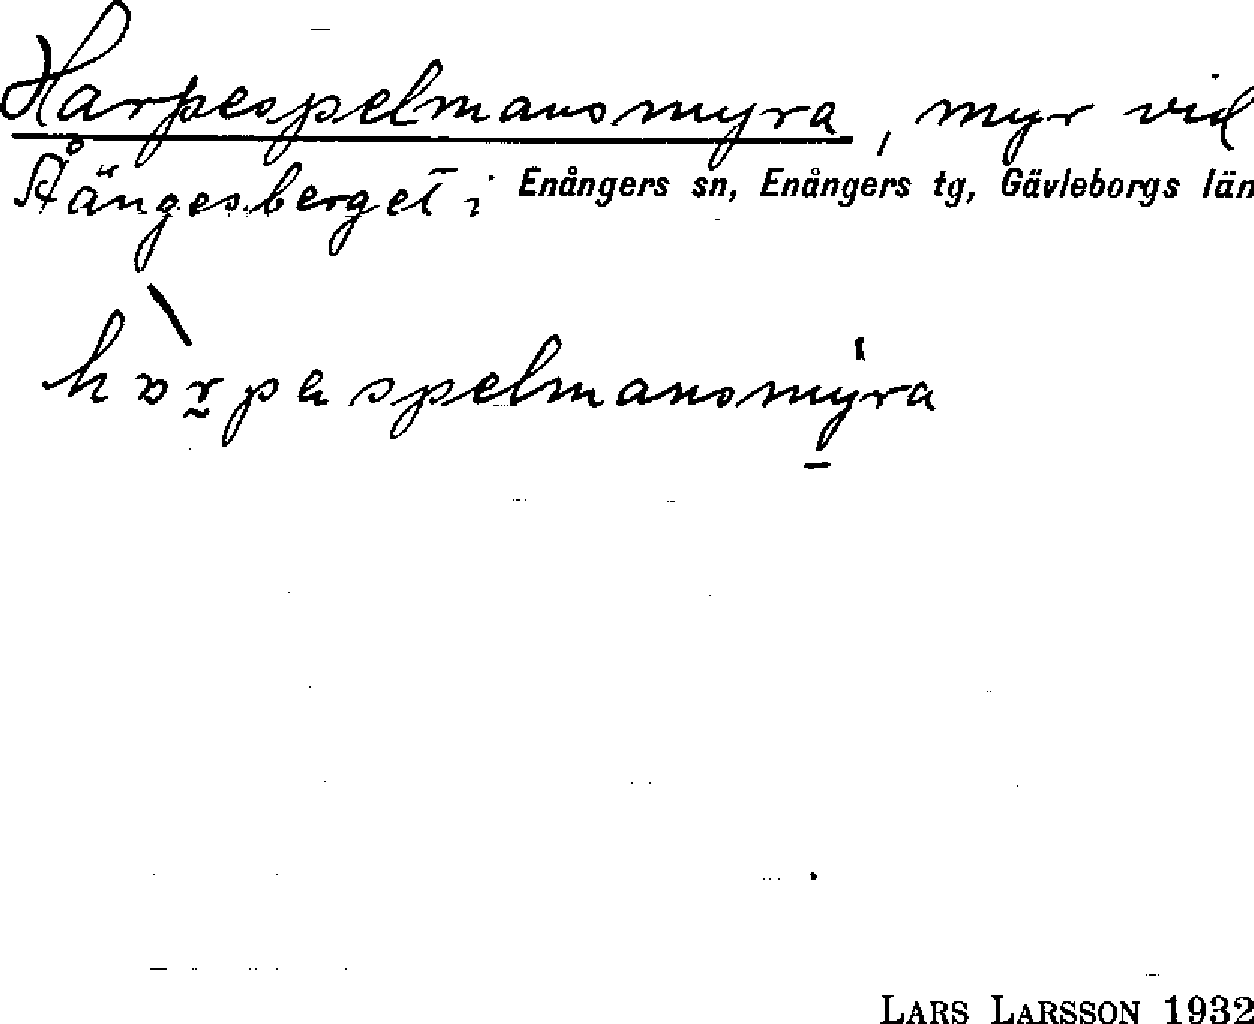 Harpespelmansmyra, myr vid
Åängesberget i Enångers sn, Enångers tg, Gävleborgs län
spelmansmyra
LARS LARSSON 1932